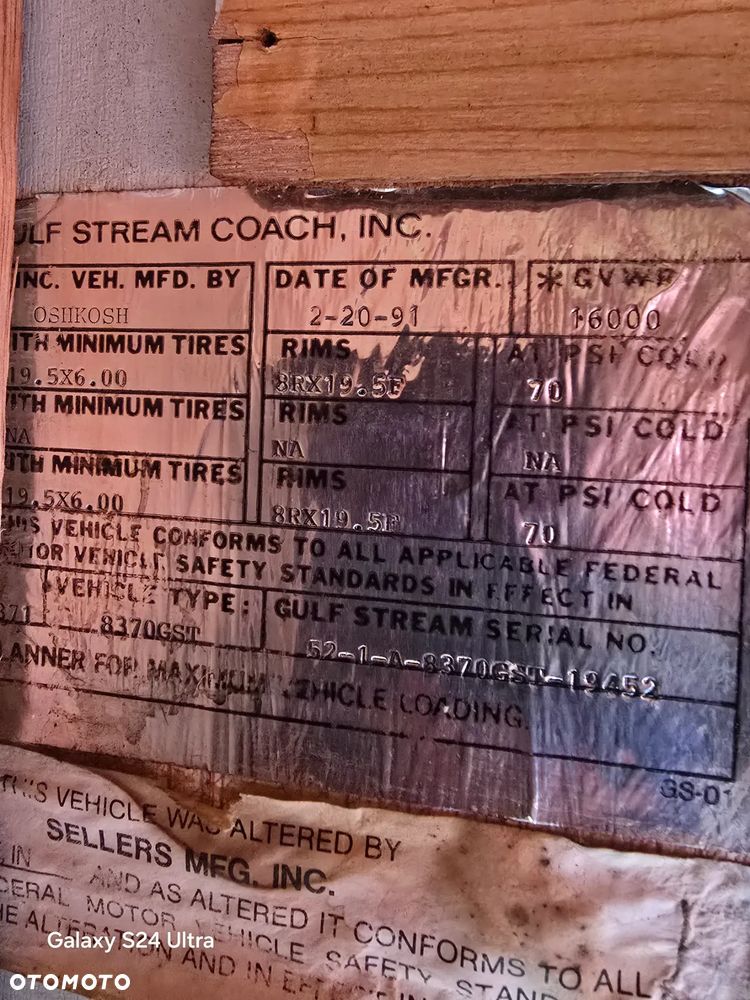 ULF STREAM COACH, INC.
INC. VEH. MFD. BY DATE OF MFGR. *GVWR
OSHKOSH 2-20-91 16000
ITH MINIMUM TIRES RIMS AT PSI COLD
19.5X6.00 8RX19.5F 70
ITH MINIMUM TIRES RIMS AT PSI COLD
NA NA NA
ITH MINIMUM TIRES RIMS AT PSI COLD
19.5X6.00 8RX19.5F 70
VEHICLE CONFORMS TO ALL APPLICABLE FEDERAL
TOR VEHICLE SAFETY STANDARDS IN EFFECT IN
VEHICLE TYPE: GULF STREAM SERIAL NO.
371 8370GST 52-1-A-8370GST-19452
LANNER FOR MAXIMUM VEHICLE LOADING.
GS-01
THIS VEHICLE WAS ALTERED BY
SELLERS MFG. INC.
IN AND AS ALTERED IT CONFORMS TO ALL
DERAL MOTOR VEHICLE SAFETY STAND
HE ALTERATION AND IN EFFECT IN
Galaxy S24 Ultra
OTOMOTO